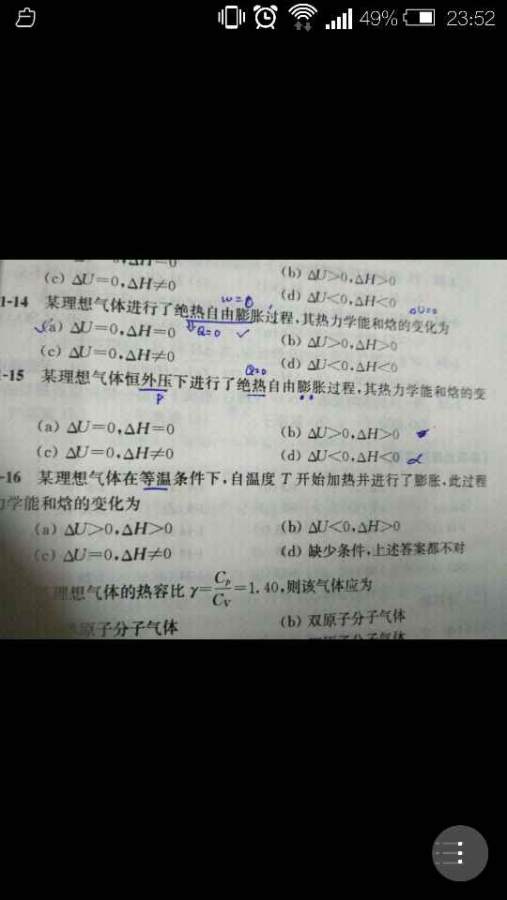 49% 23:52
(c) ΔU=0,ΔH≠0
(b) ΔU>0,ΔH>0
(d) ΔU<0,ΔH<0
w=0
ΔU=0
1-14 某理想气体进行了绝热自由膨胀过程,其热力学能和焓的变化为
(a) ΔU=0,ΔH=0
Q=0
(b) ΔU>0,ΔH>0
(c) ΔU=0,ΔH≠0
(d) ΔU<0,ΔH<0
Q=0
-15 某理想气体恒外压下进行了绝热自由膨胀过程,其热力学能和焓的变
P
(a) ΔU=0,ΔH=0
(b) ΔU>0,ΔH>0
(c) ΔU=0,ΔH≠0
(d) ΔU<0,ΔH<0
-16 某理想气体在等温条件下,自温度 T 开始加热并进行了膨胀,此过程
力学能和焓的变化为
(a) ΔU>0,ΔH>0
(b) ΔU<0,ΔH>0
(c) ΔU=0,ΔH≠0
(d) 缺少条件,上述答案都不对
理想气体的热容比 γ=Cp/CV=1.40,则该气体应为
原子分子气体
(b) 双原子分子气体